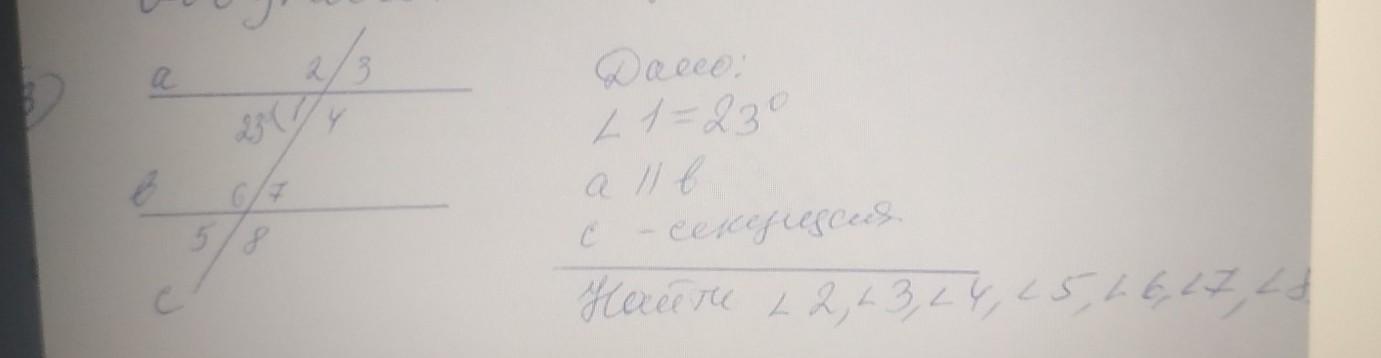 3)
a 2 3
23° 1 4
в 6 7
5 8
c
Дано:
∠1=23°
a || в
c - секущая
Найти ∠2,∠3,∠4,∠5,∠6,∠7,∠8